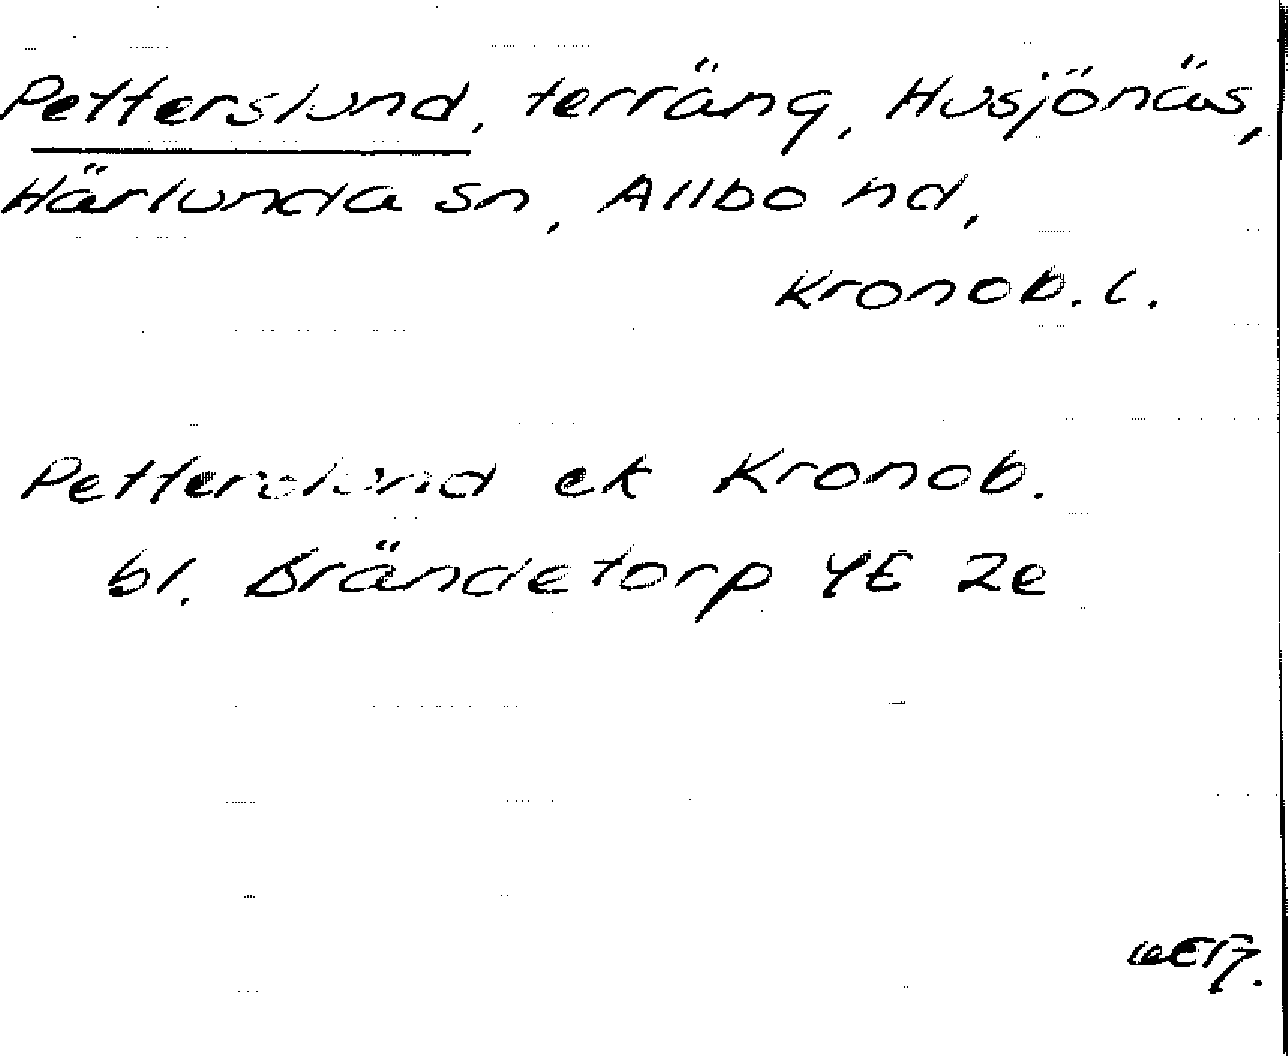 Petterslund, terräng, Husjönäs,
Härlunda sn, Allbo hd,
Kronob. l.
Petterslund ek Kronob.
bl. Brändetorp 4E 2e